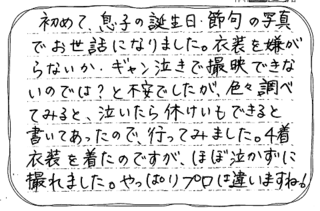 初めて、息子の誕生日・節句の写真
でお世話になりました。衣装を嫌が
らないか、ギャン泣きで撮映できな
いのでは？と不安でしたが、色々調べ
てみると、泣いたら休けいもできると
書いてあったので、行ってみました。4着
衣装を着たのですが、ほぼ泣かずに
撮れました。やっぱりプロは違いますね！